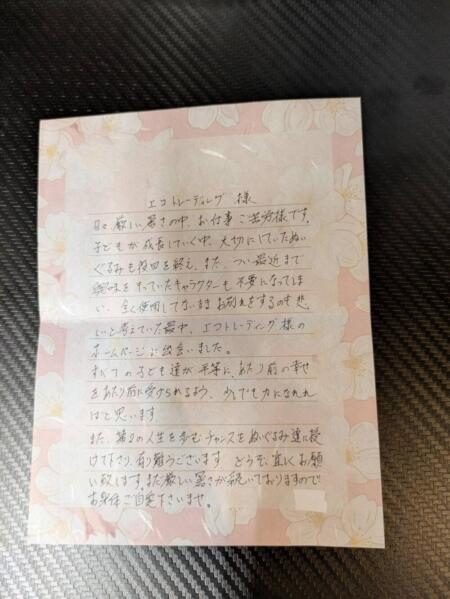 エコトレーディング 様
日々 厳しい暑さの中、お仕事ご苦労様です。
子どもが成長していく中、大切にしていたぬい
ぐるみも役目を終え、また、つい最近まで
興味をもっていたキャラクターも不要になってしま
い、全く使用してないままお別れをするのも悲
しいと考えていた最中、エコトレーディング様の
ホームページに出会いました。
すべての子ども達が平等に、あたり前の幸せ
をあたり前に受けられるよう、少しでも力になれれ
ばと思います。
また、第2の人生を歩むチャンスをぬいぐるみ達に授
けて下さり、有り難うございます。どうぞ宜しくお願
い致します。まだ厳しい暑さが続いておりますので
お身体ご自愛下さいませ。